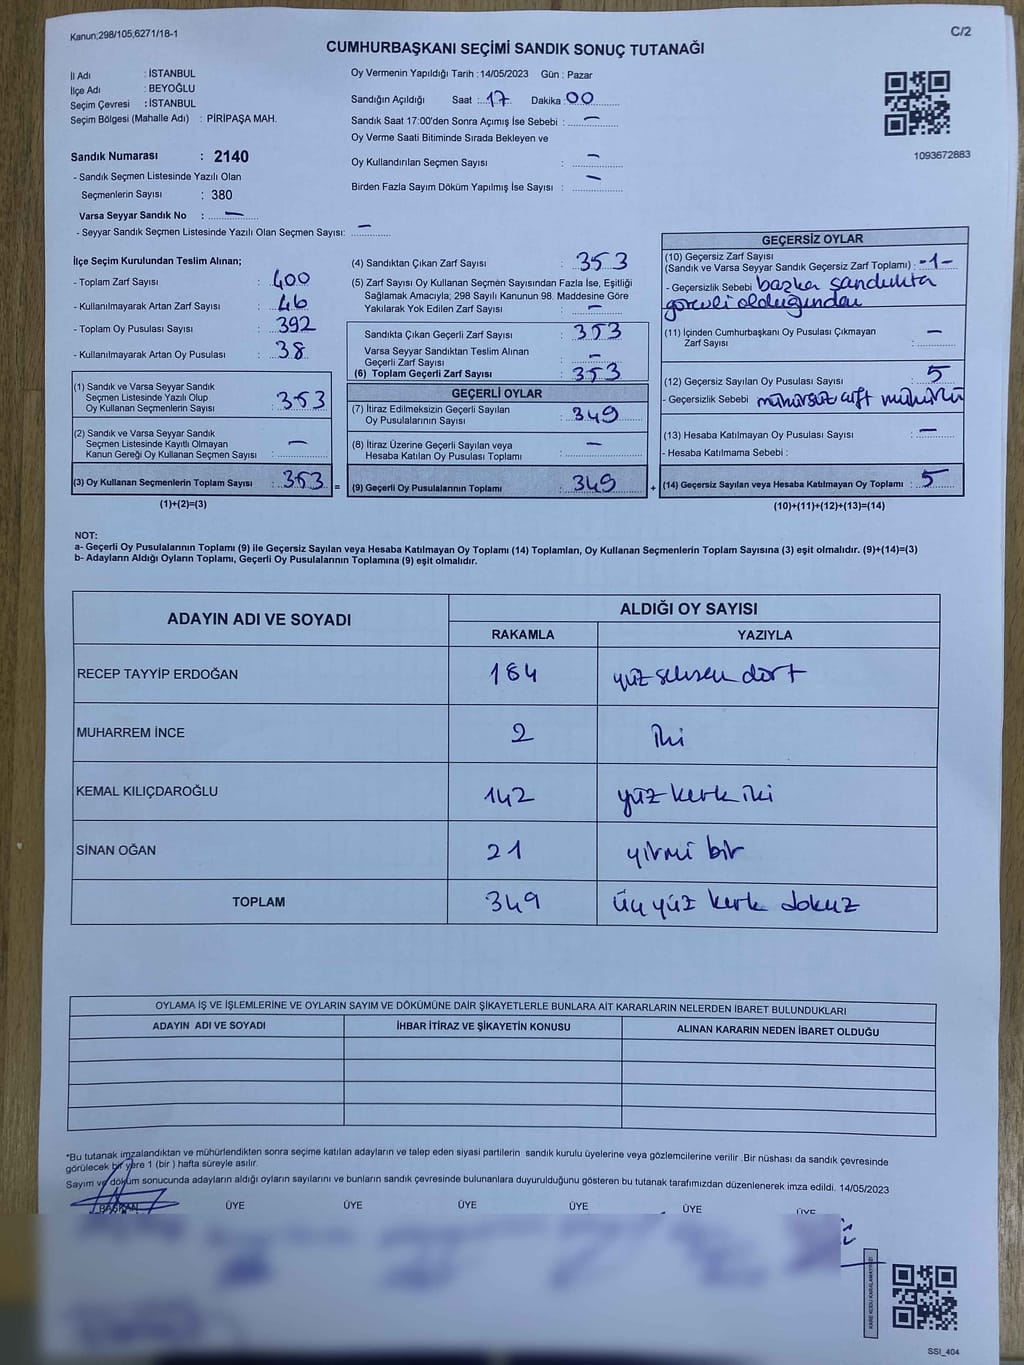 Kanun;298/105;6271/18-1
C/2
CUMHURBAŞKANI SEÇİMİ SANDIK SONUÇ TUTANAĞI
İl Adı : İSTANBUL
İlçe Adı : BEYOĞLU
Seçim Çevresi : İSTANBUL
Seçim Bölgesi (Mahalle Adı) : PİRİPAŞA MAH.
Sandık Numarası : 2140
- Sandık Seçmen Listesinde Yazılı Olan
Seçmenlerin Sayısı : 380
Varsa Seyyar Sandık No : —
- Seyyar Sandık Seçmen Listesinde Yazılı Olan Seçmen Sayısı: —
Oy Vermenin Yapıldığı Tarih : 14/05/2023 Gün : Pazar
Sandığın Açıldığı Saat : 17 Dakika : 00
Sandık Saat 17:00'den Sonra Açımış İse Sebebi : —
Oy Verme Saati Bitiminde Sırada Bekleyen ve
Oy Kullandırılan Seçmen Sayısı : —
Birden Fazla Sayım Döküm Yapılmış İse Sayısı : —
1093672883
İlçe Seçim Kurulundan Teslim Alınan;
- Toplam Zarf Sayısı : 400
- Kullanılmayarak Artan Zarf Sayısı : 46
- Toplam Oy Pusulası Sayısı : 392
- Kullanılmayarak Artan Oy Pusulası : 38
(1) Sandık ve Varsa Seyyar Sandık
Seçmen Listesinde Yazılı Olup
Oy Kullanan Seçmenlerin Sayısı : 353
(2) Sandık ve Varsa Seyyar Sandık
Seçmen Listesinde Kayıtlı Olmayan
Kanun Gereği Oy Kullanan Seçmen Sayısı : —
(3) Oy Kullanan Seçmenlerin Toplam Sayısı : 353 =
(1)+(2)=(3)
(4) Sandıktan Çıkan Zarf Sayısı : 353
(5) Zarf Sayısı Oy Kullanan Seçmen Sayısından Fazla İse, Eşitliği
Sağlamak Amacıyla; 298 Sayılı Kanunun 98. Maddesine Göre
Yakılarak Yok Edilen Zarf Sayısı : —
Sandıkta Çıkan Geçerli Zarf Sayısı : 353
Varsa Seyyar Sandıktan Teslim Alınan
Geçerli Zarf Sayısı : —
(6) Toplam Geçerli Zarf Sayısı : 353
GEÇERLİ OYLAR
(7) İtiraz Edilmeksizin Geçerli Sayılan
Oy Pusulalarının Sayısı : 349
(8) İtiraz Üzerine Geçerli Sayılan veya
Hesaba Katılan Oy Pusulası Toplamı : —
(9) Geçerli Oy Pusulalarının Toplamı : 349 +
GEÇERSİZ OYLAR
(10) Geçersiz Zarf Sayısı
(Sandık ve Varsa Seyyar Sandık Geçersiz Zarf Toplamı) : -1-
- Geçersizlik Sebebi başka sandıkta
görevli olduğundan
(11) İçinden Cumhurbaşkanı Oy Pusulası Çıkmayan
Zarf Sayısı : —
(12) Geçersiz Sayılan Oy Pusulası Sayısı : 5
- Geçersizlik Sebebi mühürsüz çift mühürlü
(13) Hesaba Katılmayan Oy Pusulası Sayısı : —
- Hesaba Katılmama Sebebi :
(14) Geçersiz Sayılan veya Hesaba Katılmayan Oy Toplamı : 5
(10)+(11)+(12)+(13)=(14)
NOT:
a- Geçerli Oy Pusulalarının Toplamı (9) ile Geçersiz Sayılan veya Hesaba Katılmayan Oy Toplamı (14) Toplamları, Oy Kullanan Seçmenlerin Toplam Sayısına (3) eşit olmalıdır. (9)+(14)=(3)
b- Adayların Aldığı Oyların Toplamı, Geçerli Oy Pusulalarının Toplamına (9) eşit olmalıdır.
ADAYIN ADI VE SOYADI ALDIĞI OY SAYISI
RAKAMLA YAZIYLA
RECEP TAYYİP ERDOĞAN 184 yüz seksen dört
MUHARREM İNCE 2 iki
KEMAL KILIÇDAROĞLU 142 yüz kırk iki
SİNAN OĞAN 21 yirmi bir
TOPLAM 349 üç yüz kırk dokuz
OYLAMA İŞ VE İŞLEMLERİNE VE OYLARIN SAYIM VE DÖKÜMÜNE DAİR ŞİKAYETLERLE BUNLARA AİT KARARLARIN NELERDEN İBARET BULUNDUKLARI
ADAYIN ADI VE SOYADI İHBAR İTİRAZ VE ŞİKAYETİN KONUSU ALINAN KARARIN NEDEN İBARET OLDUĞU
*Bu tutanak imzalandıktan ve mühürlendikten sonra seçime katılan adayların ve talep eden siyasi partilerin sandık kurulu üyelerine veya gözlemcilerine verilir .Bir nüshası da sandık çevresinde
görülecek bir yere 1 (bir ) hafta süreyle asılır.
Sayım ve döküm sonucunda adayların aldığı oyların sayılarını ve bunların sandık çevresinde bulunanlara duyurulduğunu gösteren bu tutanak tarafımızdan düzenlenerek imza edildi. 14/05/2023
BAŞKAN ÜYE ÜYE ÜYE ÜYE ÜYE ÜYE
SSİ_404